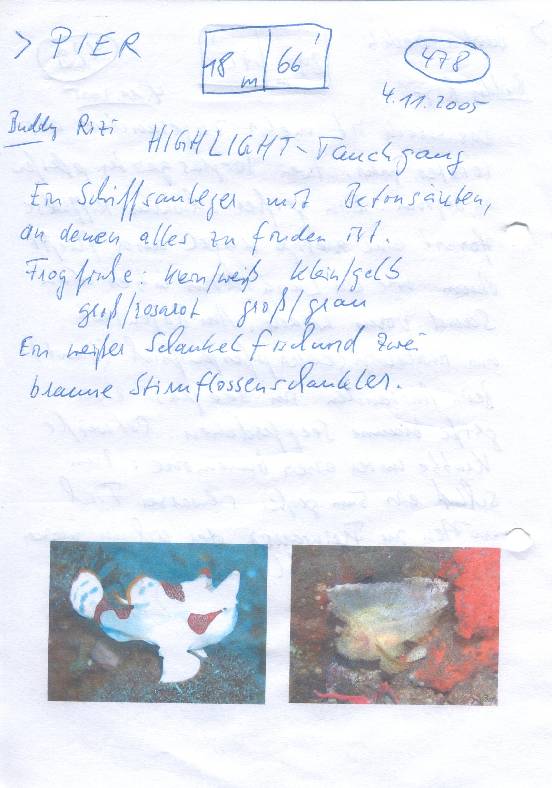 > PIER
18 m 66'
478
4.11.2005
Buddy Rizi
HIGHLIGHT-Tauchgang
Ein Schiffsanleger mit Betonsäulen,
an denen alles zu finden ist.
Frogfische: klein/weiß klein/gelb
groß/rosarot groß/grau
Ein weißer Schaukelfisch und zwei
braune Stirnflossenschaukler.